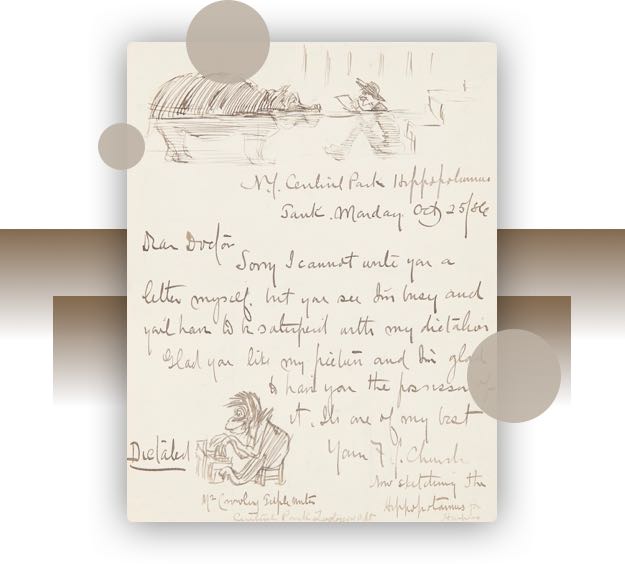 N.Y. Central Park Hippopotamus
Tank. Monday Oct 25/86
Dear Doctor
Sorry I cannot write you a
letter myself. but you see I'm busy and
you'll have to be satisfied with my dictation
Glad you like my picture and I'm glad
to have you the possessor of
it. Its one of my best
Yours F. S. Church
Dictated
Now sketching the
Hippopotamus for
Mr Crowley
Central Park